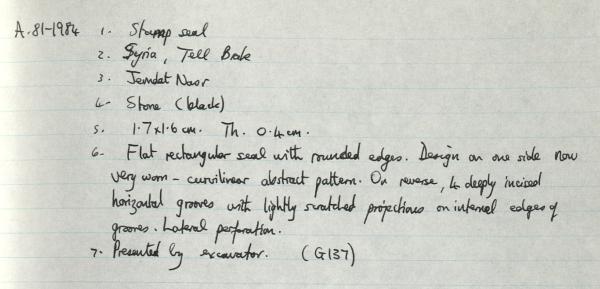 A.81-1984 1. Stamp seal
2. Syria, Tell Brak
3. Jemdat Nasr
4. Stone (black)
5. 1.7x1.6 cm. Th. 0.4 cm.
6. Flat rectangular seal with rounded edges. Design on one side now
very worn - curvilinear abstract pattern. On reverse, 4 deeply incised
horizontal grooves with lightly scratched projections on internal edges of
grooves. Lateral perforation.
7. Presented by excavator. (G137)